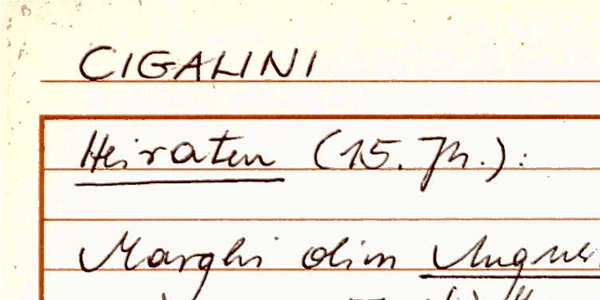 CIGALINI
Heiraten (15. Jh.):
Marghi olim